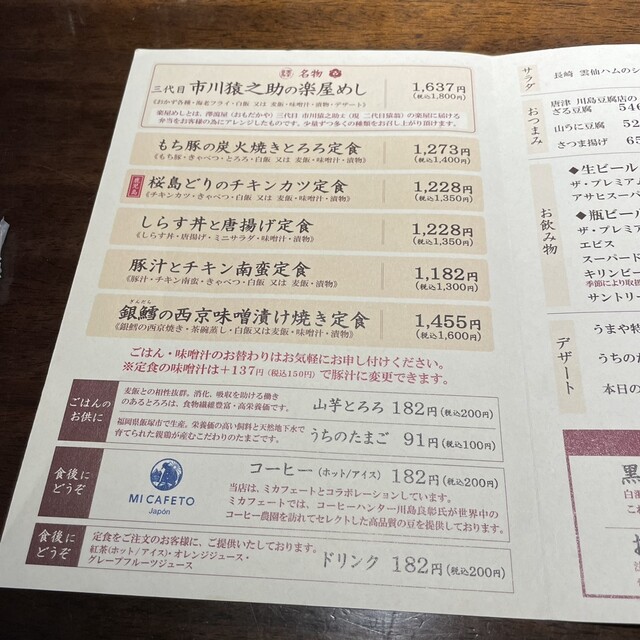 名物
三代目 市川猿之助の楽屋めし 1,637円
(税込1,800円)
《おかず各種・海老フライ・白飯 又は 麦飯・味噌汁・漬物・デザート》
楽屋めしとは、澤瀉屋(おもだかや)三代目 市川猿之助丈(現 二代目猿翁)の楽屋に届ける
弁当をお客様の為にアレンジしたものです。少量ずつ多くの種類をお召し上がり頂けます。
もち豚の炭火焼きとろろ定食 1,273円
《もち豚・きゃべつ・とろろ・白飯 又は 麦飯・味噌汁・漬物》 (税込1,400円)
鹿児島 桜島どりのチキンカツ定食 1,228円
《チキンカツ・きゃべつ・白飯 又は 麦飯・味噌汁・漬物》 (税込1,350円)
しらす丼と唐揚げ定食 1,228円
《しらす丼・唐揚げ・ミニサラダ・味噌汁・漬物》 (税込1,350円)
豚汁とチキン南蛮定食 1,182円
《豚汁・チキン南蛮・きゃべつ・白飯 又は 麦飯・漬物》 (税込1,300円)
ぎんだら
銀鱈の西京味噌漬け焼き定食 1,455円
《銀鱈の西京焼き・茶碗蒸し・白飯又は麦飯・味噌汁・漬物》 (税込1,600円)
ごはん・味噌汁のお替わりはお気軽にお申し付けください。
※定食の味噌汁は+137円(税込150円)で豚汁に変更できます。
ごはんの
お供に
麦飯との相性抜群。消化、吸収を助ける働き
のあるとろろは、食物繊維豊富・高栄養価です。
山芋とろろ 182円(税込200円)
福岡県飯塚市で生産。栄養価の高い飼料と天然地下水で
育てられた親鶏が産むこだわりのたまごです。
うちのたまご 91円(税込100円)
食後に
どうぞ
MI CAFETO
Japón
コーヒー(ホット/アイス) 182円(税込200円)
当店は、ミカフェートとコラボレーションしています。
ミカフェートでは、コーヒーハンター川島良彰氏が世界中の
コーヒー農園を訪れてセレクトした高品質の豆を提供しております。
食後に
どうぞ
定食をご注文のお客様に、ご提供いたしております。
紅茶(ホット/アイス)・オレンジジュース・
グレープフルーツジュース
ドリンク 182円(税込200円)
サラダ
長崎 雲仙ハムのシ
おつまみ
唐津 川島豆腐店の
ざる豆腐 546
山うに豆腐
さつま揚げ
お飲み物
◆生ビール
ザ・プレミア
アサヒスーパー
◆瓶ビール
ザ・プレミア
エビス
スーパード
キリンビー
季節により取扱
サントリー
デザート
うまや特
うちのた
本日の